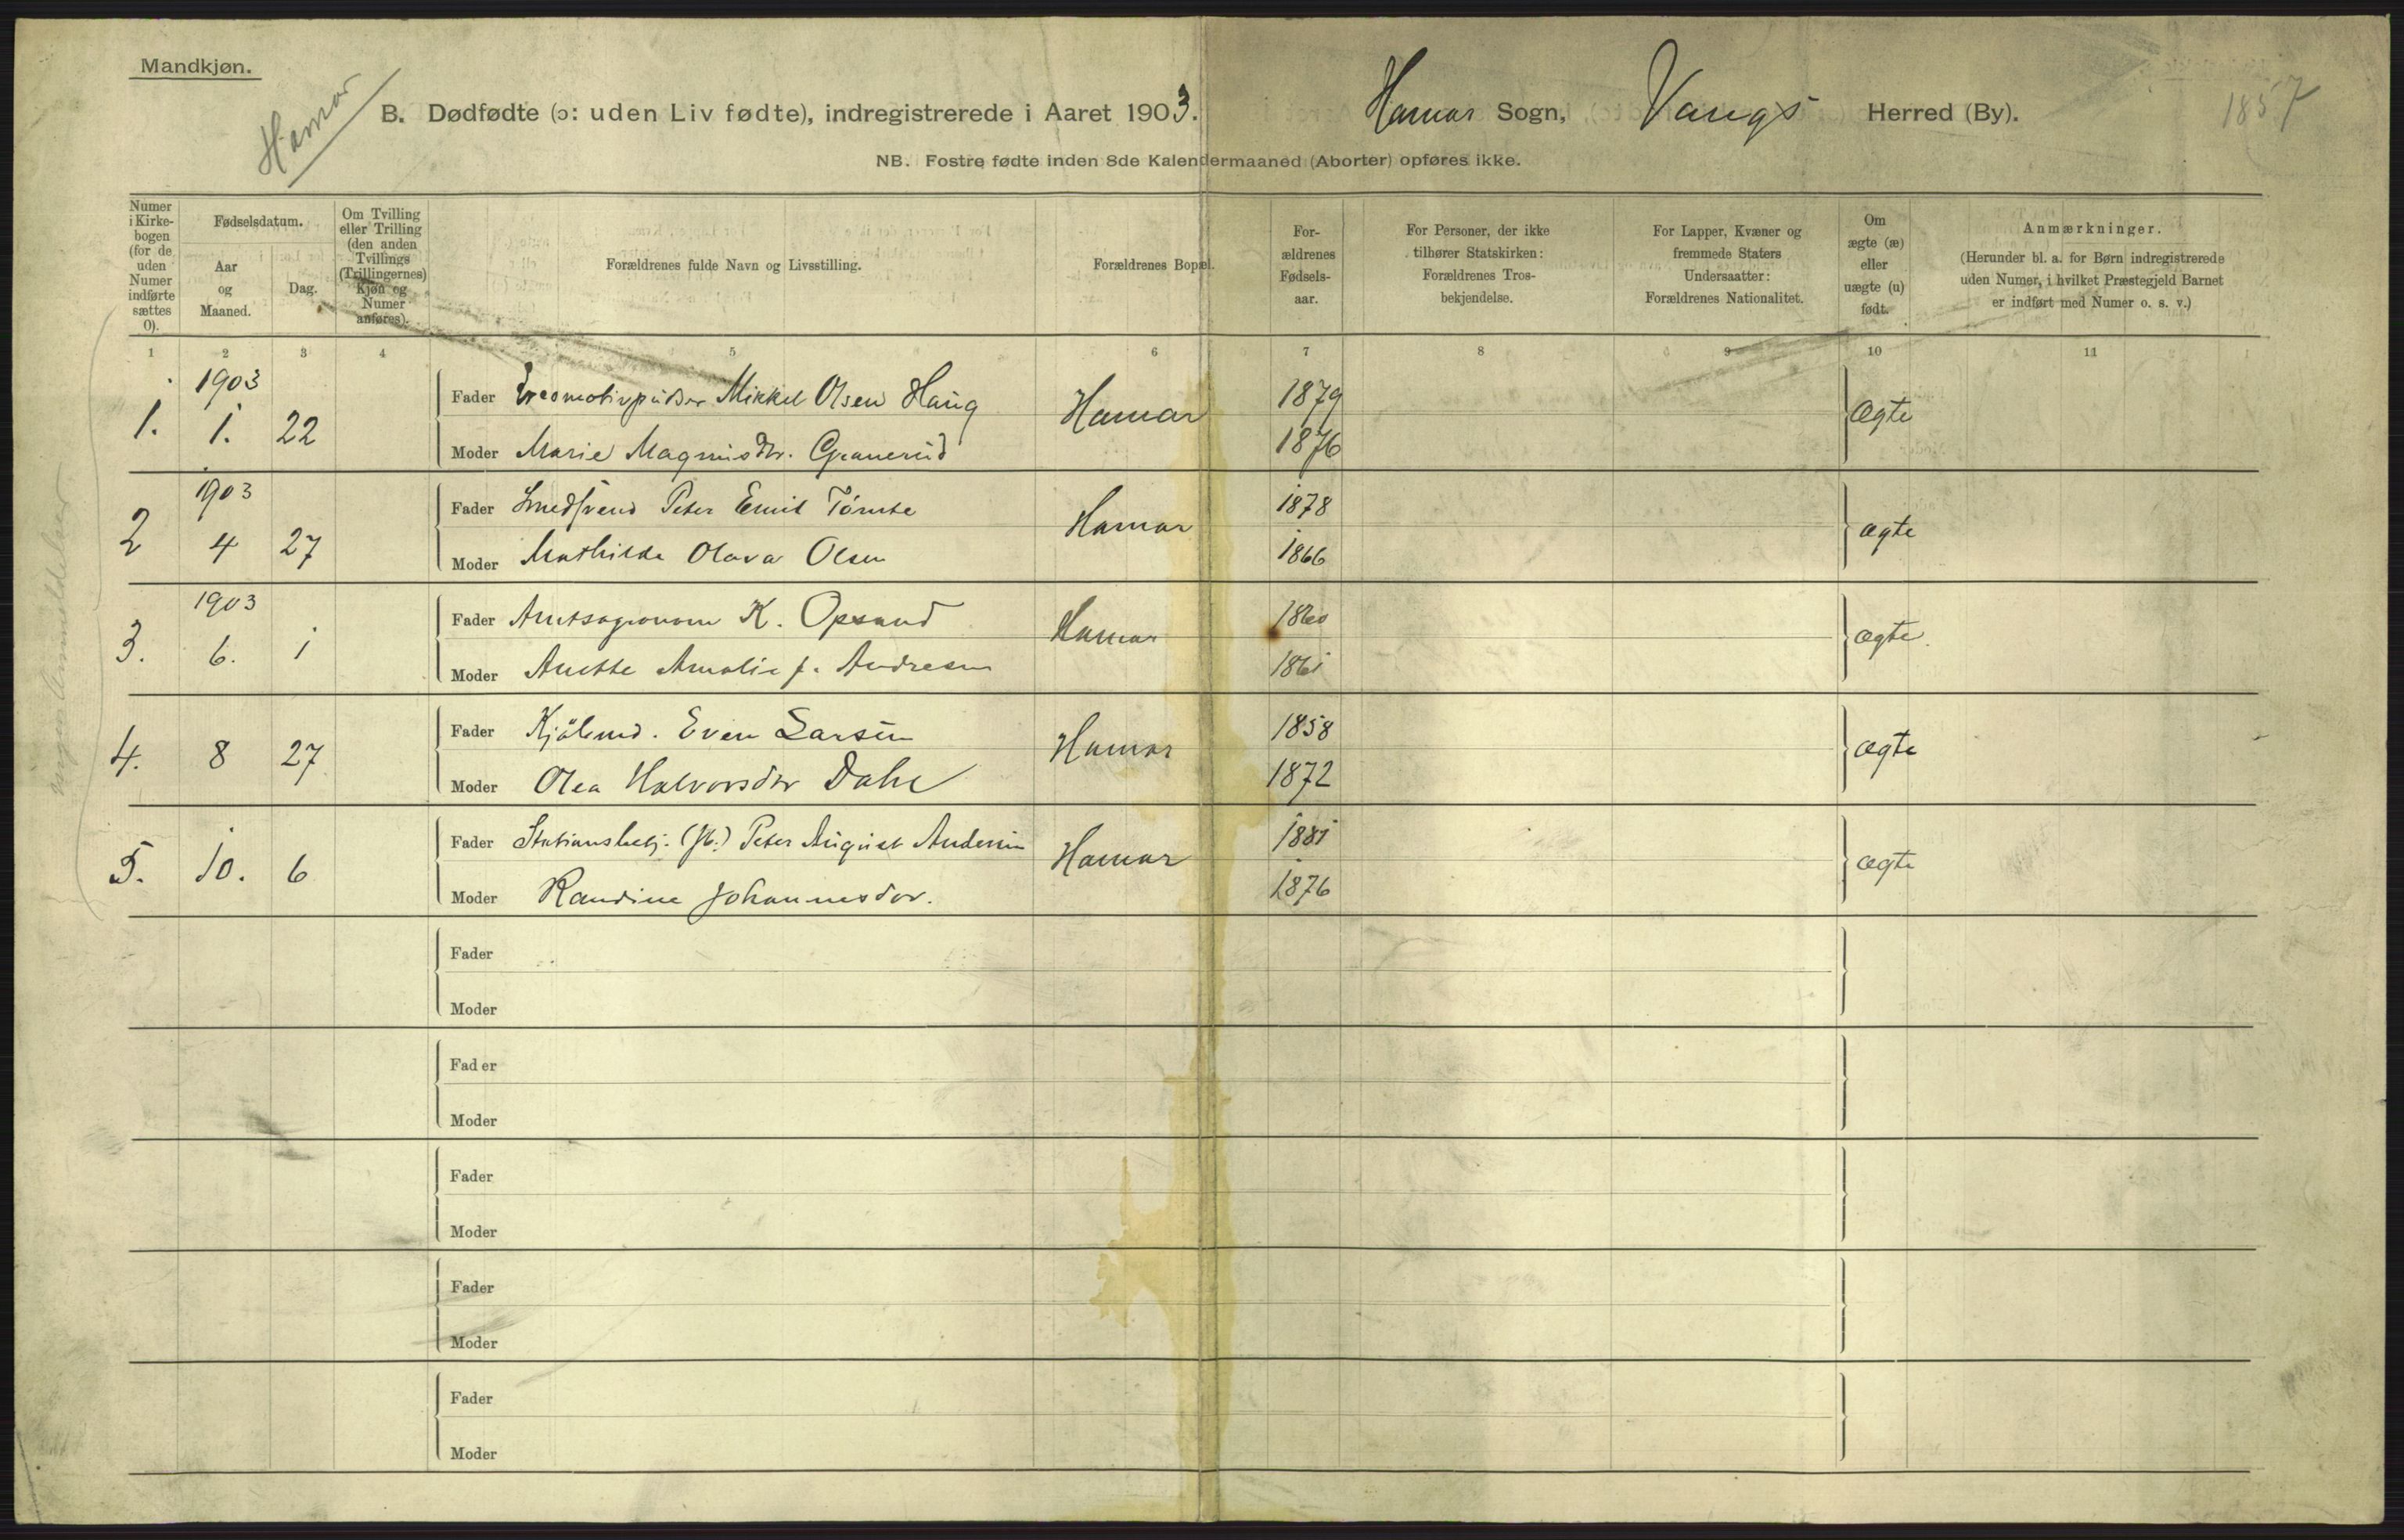 Mandkjøn.
Hamar
B. Dødfødte (ɔ: uden Liv fødte), indregistrerede i Aaret 1903. Hamar Sogn, Vangs Herred (By).
1857
NB. Fostre fødte inden 8de Kalendermaaned (Aborter) opføres ikke.
Numer i Kirke-bogen (for de uden Numer indførte sættes 0).
Fødselsdatum.
Aar og Maaned.
Dag.
Om Tvilling eller Trilling (den anden Tvillings (Trillingernes) Kjøn og Numer anføres).
Forældrenes fulde Navn og Livsstilling.
Forældrenes Bopæl.
For-ældrenes Fødsels-aar.
For Personer, der ikke tilhører Statskirken: Forældrenes Tros-bekjendelse.
For Lapper, Kvæner og fremmede Staters Undersaatter: Forældrenes Nationalitet.
Om ægte (æ) eller uægte (u) født.
Anmærkninger.
(Herunder bl. a. for Børn indregistrerede uden Numer, i hvilket Præstegjeld Barnet er indført med Numer o. s. v.)
1 2 3 4 5 6 7 8 9 10 11
1903
1. 1. 22
Fader Locomotivpudser Mikkel Olsen Haug Hamar 1879 Ægte
Moder Marie Magnusdtr. Granerud 1876
1903
2 4 27
Fader Smedsvend Peter Emil Tómte Hamar 1878 ægte
Moder Mathilde Olava Olsen 1866
1903
3. 6. 1
Fader Amtsagronom K. Opsand Hamar 1860 ægte.
Moder Anette Amalie f. Andresen 1861
4. 8 27
Fader Kjøbmd. Even Larsen Hamar 1858 ægte
Moder Olea Halvorsdtr Dahl 1872
5. 10. 6
Fader Stationsbetj. Peter August Andersen Hamar 1881 ægte
Moder Randine Johannesdtr. 1876
Fader
Moder
Fader
Moder
Fader
Moder
Fader
Moder
Fader
Moder